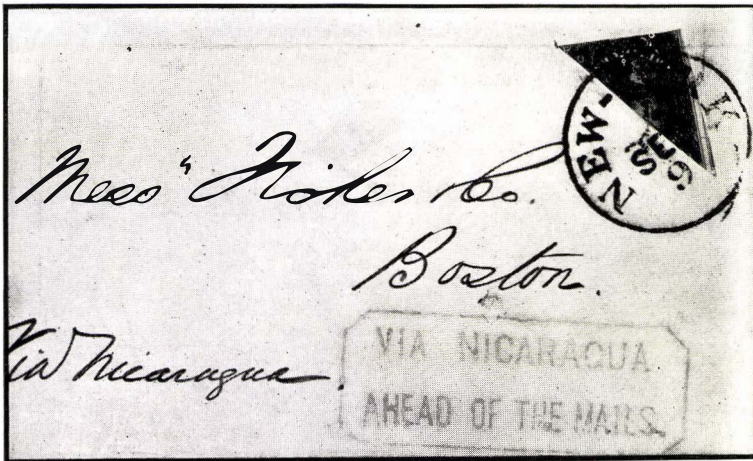 NEW-
Mess" Fisher & Co.
Boston.
Via Nicaragua.
VIA NICARAGUA
AHEAD OF THE MAILS.